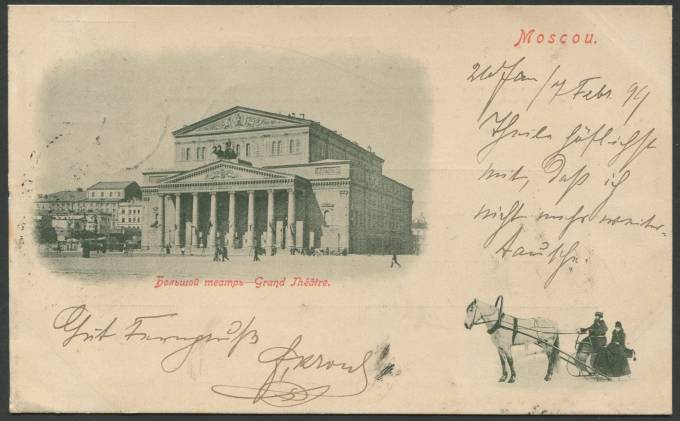 Moscou.
Jan / 7 Febr. 99
Theile höflichst
mit, daß ich
nicht mehr weiter-
tausche.
Большой театръ—Grand Théâtre.
Gut Ferngruß